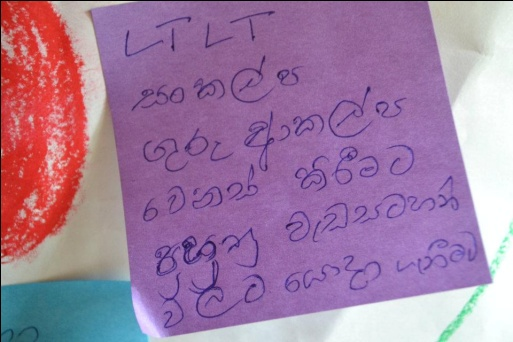 LT LT
සංකල්ප
ගුරු ආකල්ප
වෙනස් කිරීමට
පුහුණු වැඩසටහන්
වලට යොදා ගැනීමට